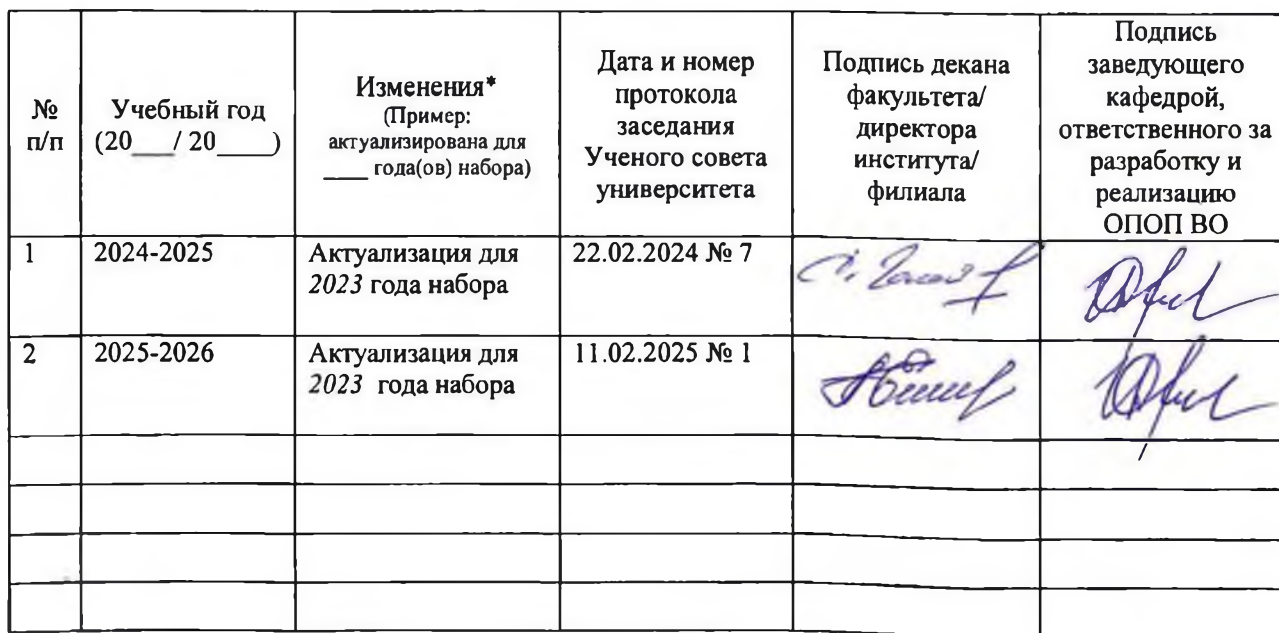 №
п/п
Учебный год
(20___/ 20_____)
Изменения*
(Пример:
актуализирована для
____ года(ов) набора)
Дата и номер
протокола
заседания
Ученого совета
университета
Подпись декана
факультета/
директора
института/
филиала
Подпись
заведующего
кафедрой,
ответственного за
разработку и
реализацию
ОПОП ВО
1
2024-2025
Актуализация для
2023 года набора
22.02.2024 № 7
2
2025-2026
Актуализация для
2023 года набора
11.02.2025 № 1